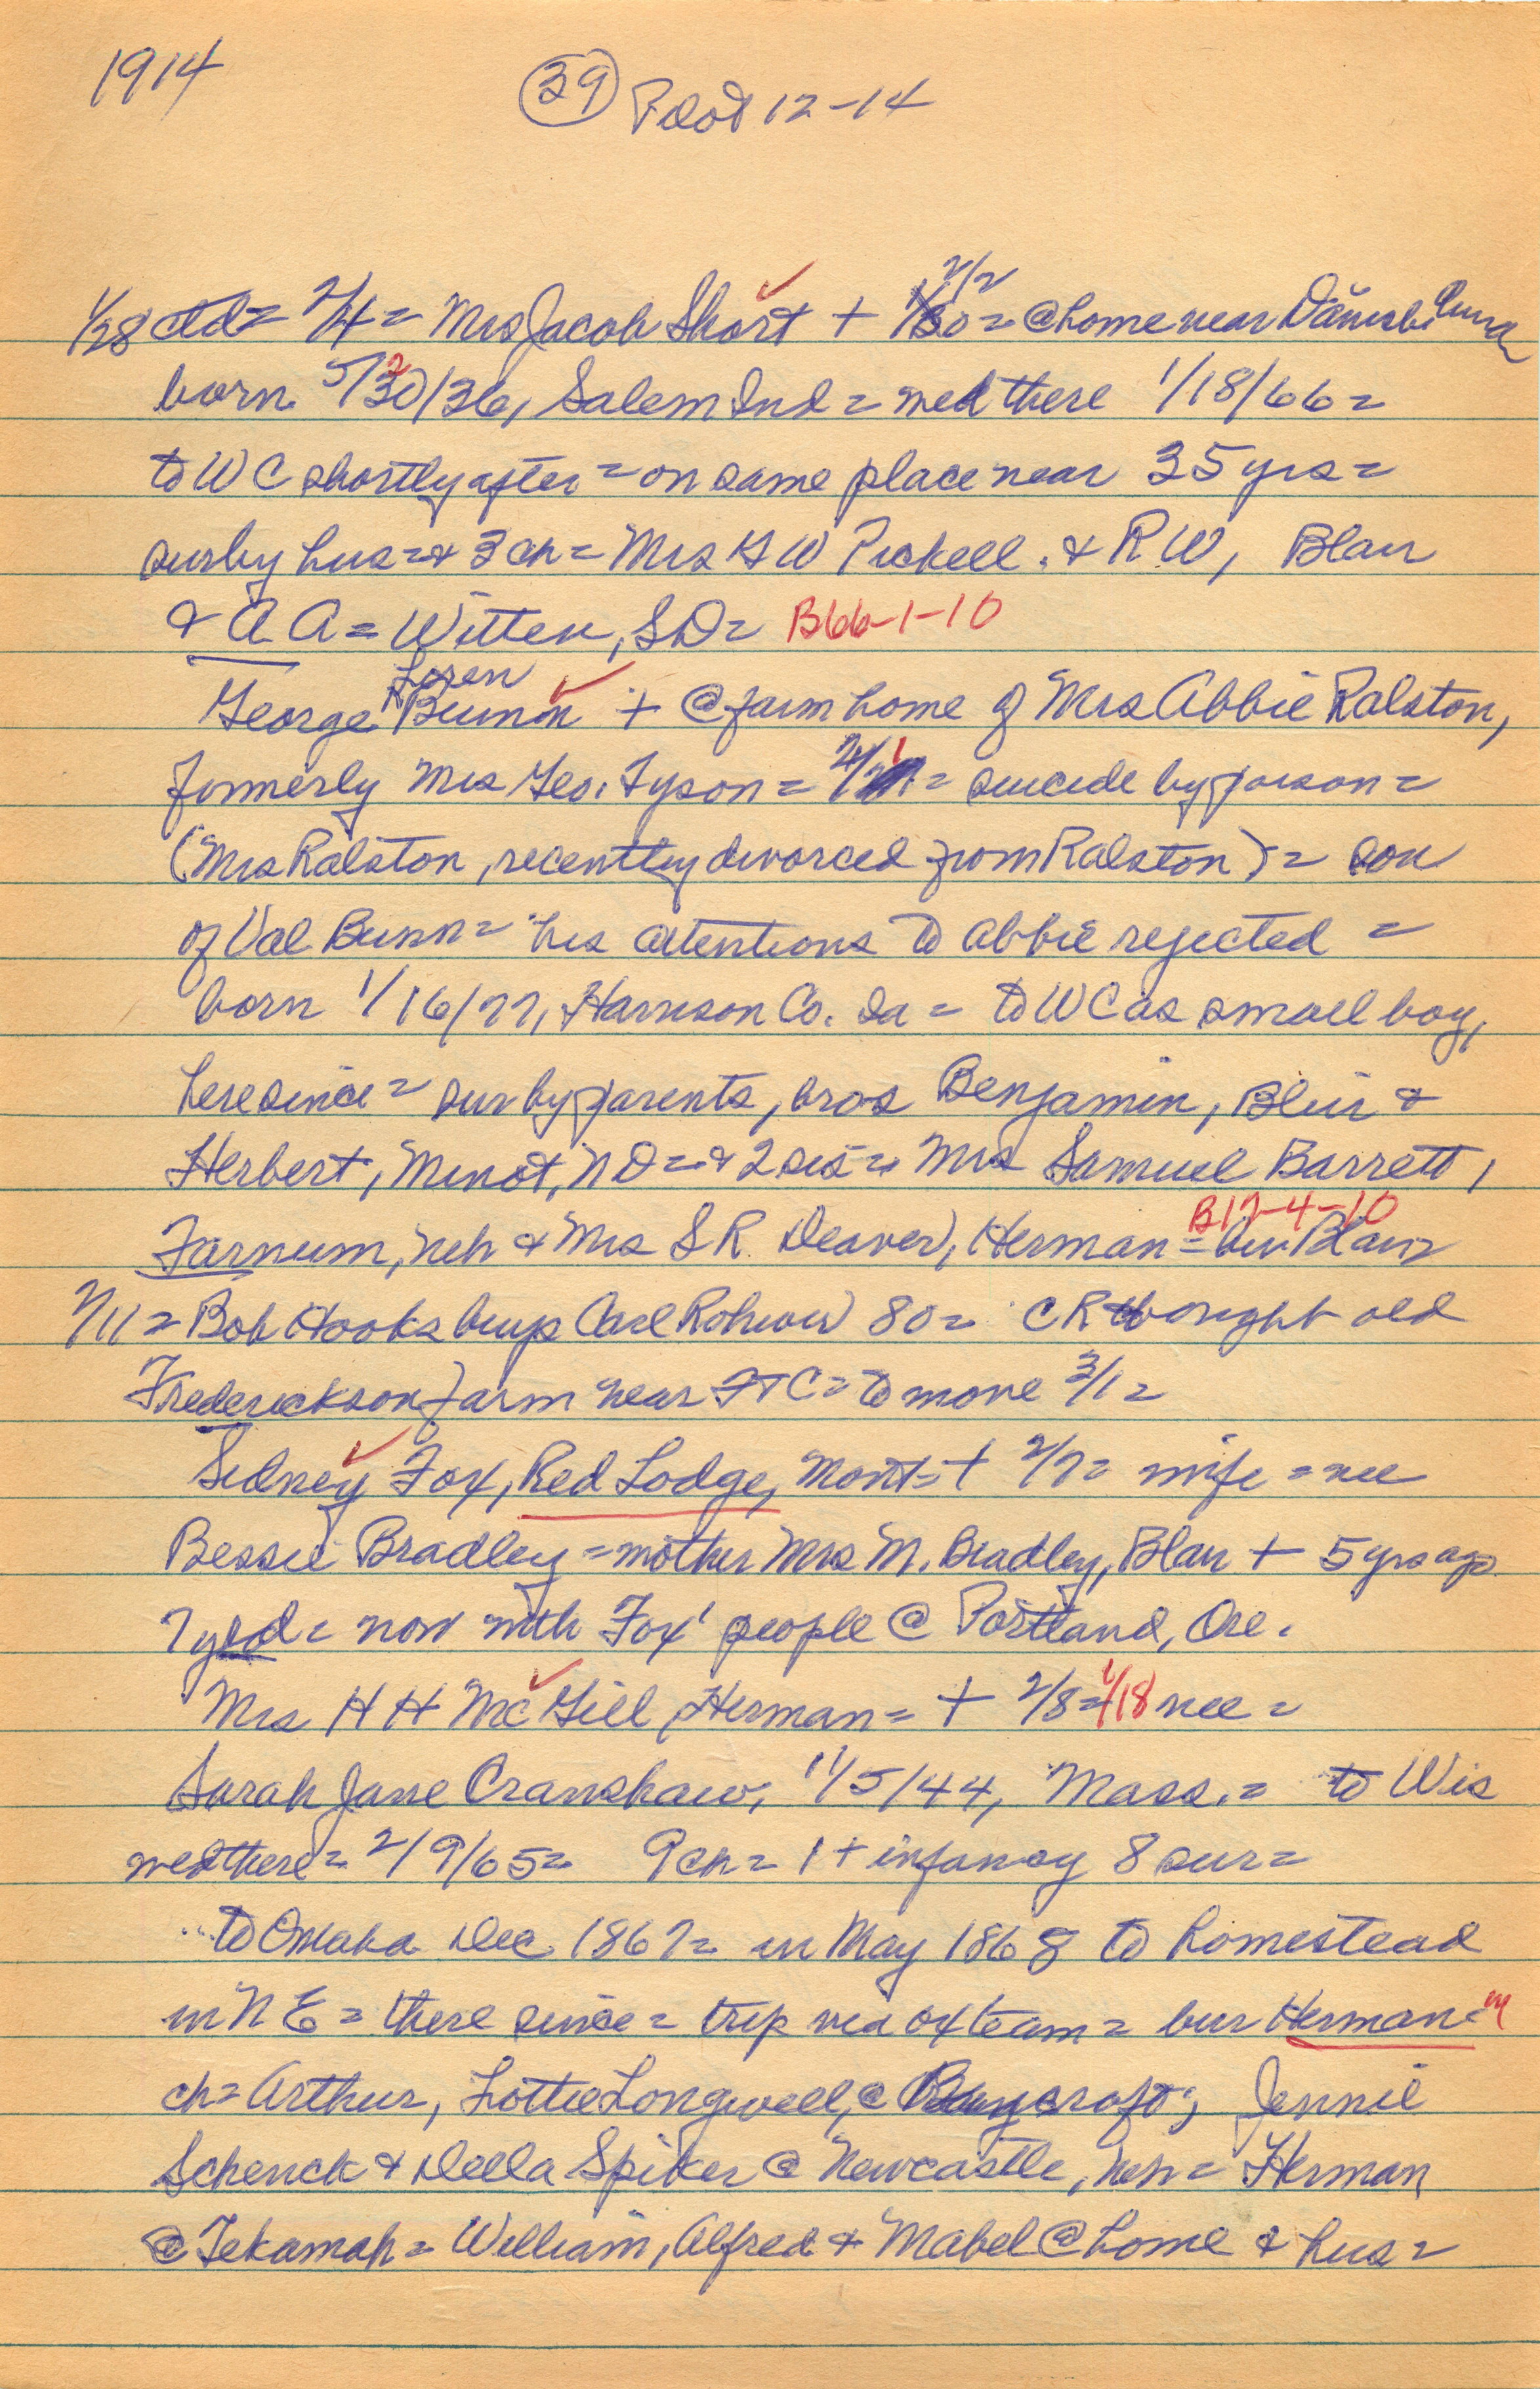 1914
39 Pilot 12-14
2/2
1/28 ctd = 2/4 = Mrs Jacob Short + 1/30 = @ home near Danish Luth
born 5/30/36, Salem Ind = wed there 1/18/66 =
to WC shortly after = on same place near 35 yrs =
sur by hus = & 3 ch = Mrs G W Pickell. & R W, Blair
& A A = Witten, SD = B66-1-10
Loren
George Bunn + @ farm home of Mrs Abbie Ralston,
formerly Mrs Geo. Tyson = 2/1 = suicide by poison =
(Mrs Ralston, recently divorced from Ralston) = son
of Val Bunn = his attentions to Abbie rejected =
born 1/16/77, Harrison Co. Ia = to WC as small boy,
here since = sur by parents, bros Benjamin, Blair &
Herbert, Minot, ND = & 2 sis = Mrs Samuel Barrett,
B17-4-10
Farnum, Neb & Mrs S R. Deaver, Herman = bur Blair =
2/11 = Bob Hooks buys Carl Rohwer 80 = CR bought old
Frederickson farm near FTC = to move 3/1 =
Sidney Fox, Red Lodge, Mont = + 2/7 = wife = nee
Bessie Bradley = mother Mrs M. Bradley, Blair + 5 yrs ago
7 yrd = now with Fox' people @ Portland, Ore.
Mrs H H McGill, Herman = + 2/8 = 1/18 nee =
Sarah Jane Cranshaw, 11/5/44, Mass. = to Wis
wed there = 2/9/65 = 9 ch = 1 + infancy 8 sur =
to Omaha Dec 1867 = in May 1868 to homestead
in N E = there since = trip via ox team = bur Herman =
ch = Arthur, Lottie Longwell, @ Bancroft; Jennie
Schenck & Della Spiker @ Newcastle, Neb = Herman
@ Tekamah = William, Alfred & Mabel @ home & hus =